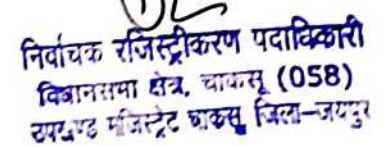 निर्वाचक रजिस्ट्रीकरण पदाधिकारी
विधानसभा क्षेत्र, चाकसू (058)
उपखण्ड मजिस्ट्रेट चाकसू जिला-जयपुर